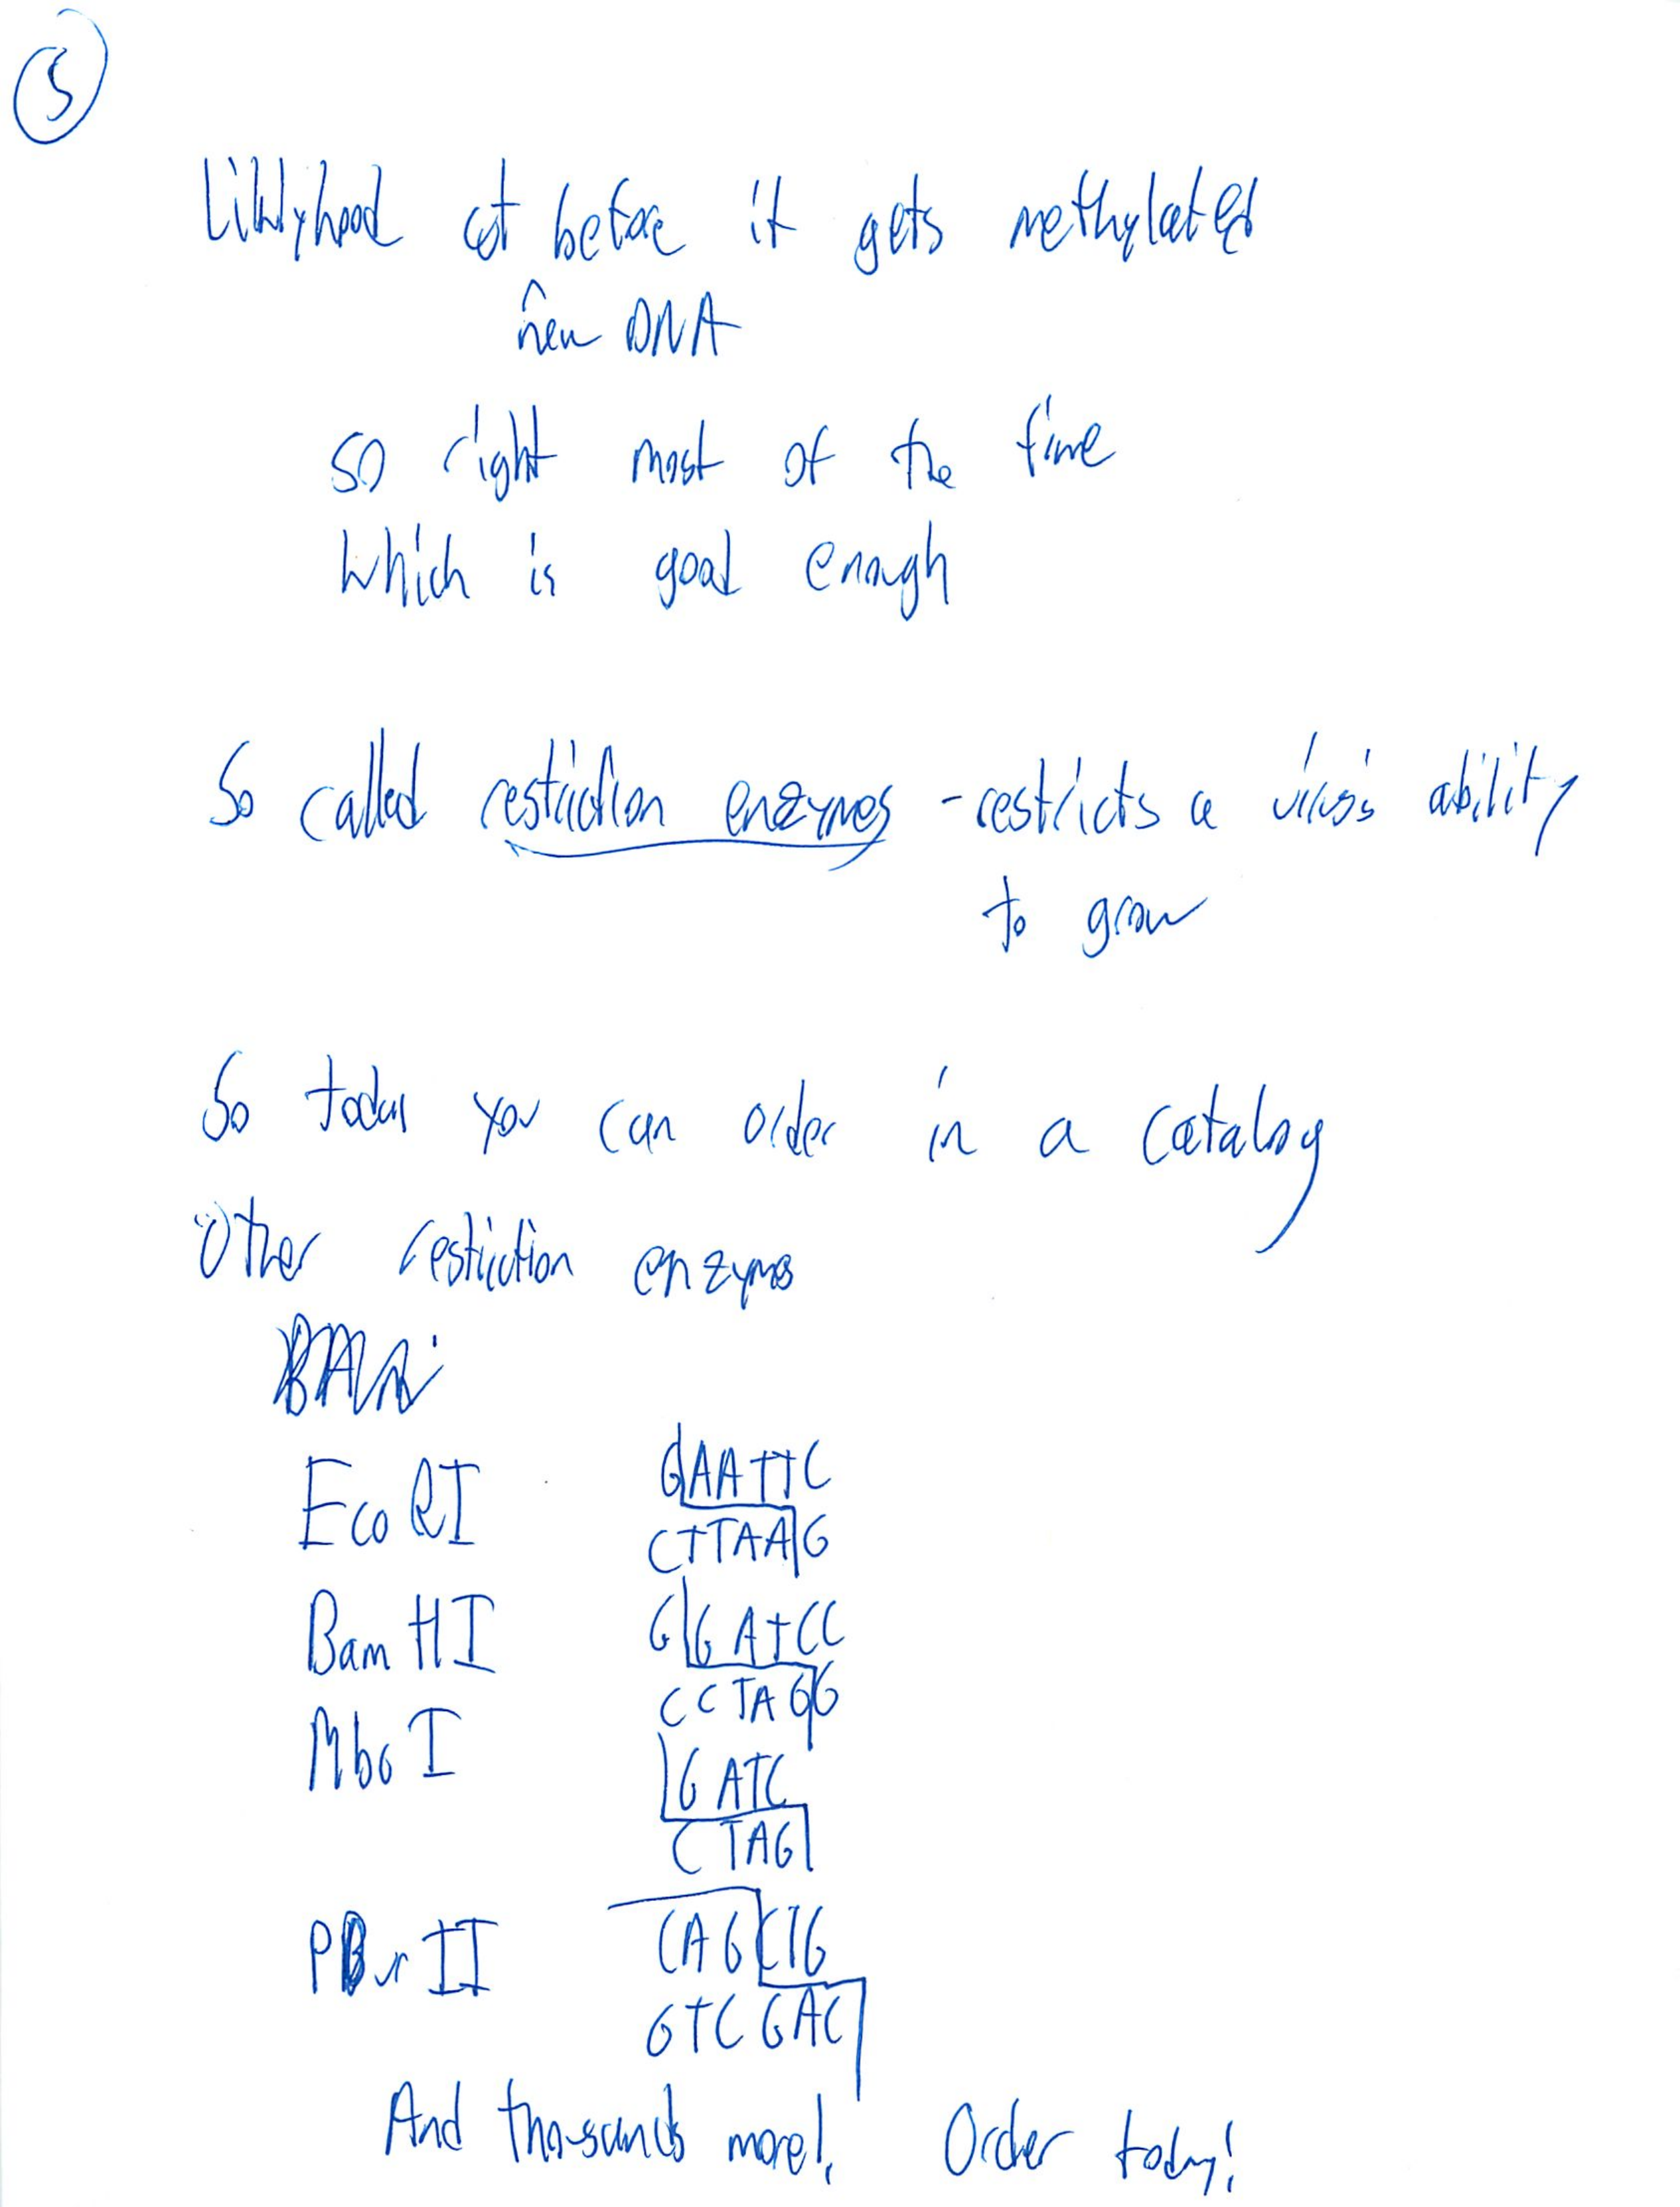 5
Liklyhood cut before it gets methylated
^
new DNA
so right most of the time
which is good enough
So called restriction enzymes - restricts a virus's ability
to grow
So today you can order in a catalog
Other restriction enzymes
EcoRI GAATTC
CTTAAG
BamHI GGATCC
CCTAGG
MboI GATC
CTAG
II CAGCTG
GTCGAC
And thousands more! Order today!